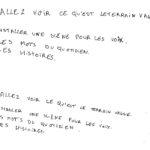 ALLEZ VOIR CE QU'EST LE TERRAIN VAG
NSTALLER UNE SCÈNE POUR LES VOIX.
LES MOTS DU QUOTIDIEN.
ES HISTOIRES.
ALLEZ VOIR CE QU'EST CE TERRAIN VAGUE
STALLER UNE SCÈNE POUR LES VOIX.
S MOTS DU QUOTIDIEN.
ES HISTOIRES.